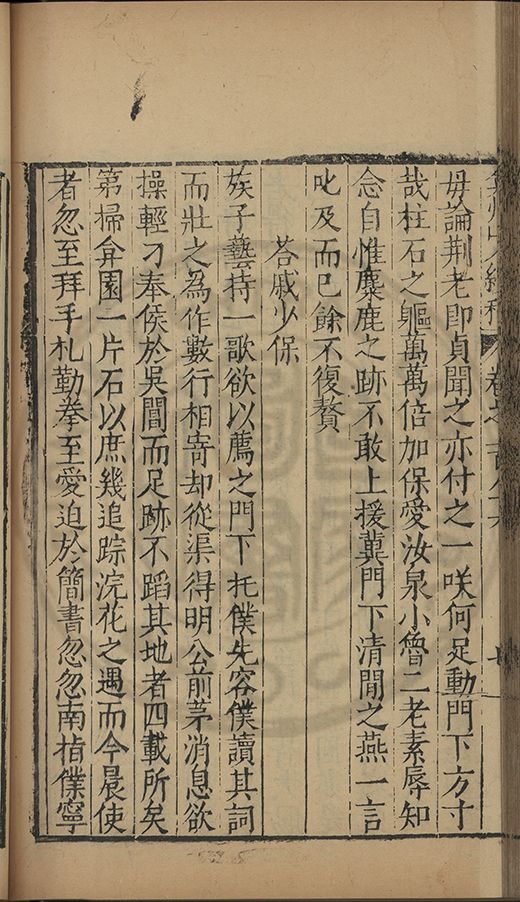 毋論荆老即貞聞之亦付之一咲何足動門下方寸
哉柱石之軀萬萬倍加保愛汝泉小魯二老素辱知
念自惟麋鹿之跡不敢上援兾門下清閒之燕一言
叱及而已餘不復贅
荅戚少保
族子藝持一歌欲以薦之門下托僕先容僕讀其詞
而壯之為作數行相寄却從渠得明公前茅消息欲
操輕刀奉侯於吳閶而足跡不蹈其地者四載所矣
第掃弇園一片石以庶幾追踪浣花之遇而今晨使
者忽至拜手札勤拳至愛迫於簡書忽忽南指僕寧